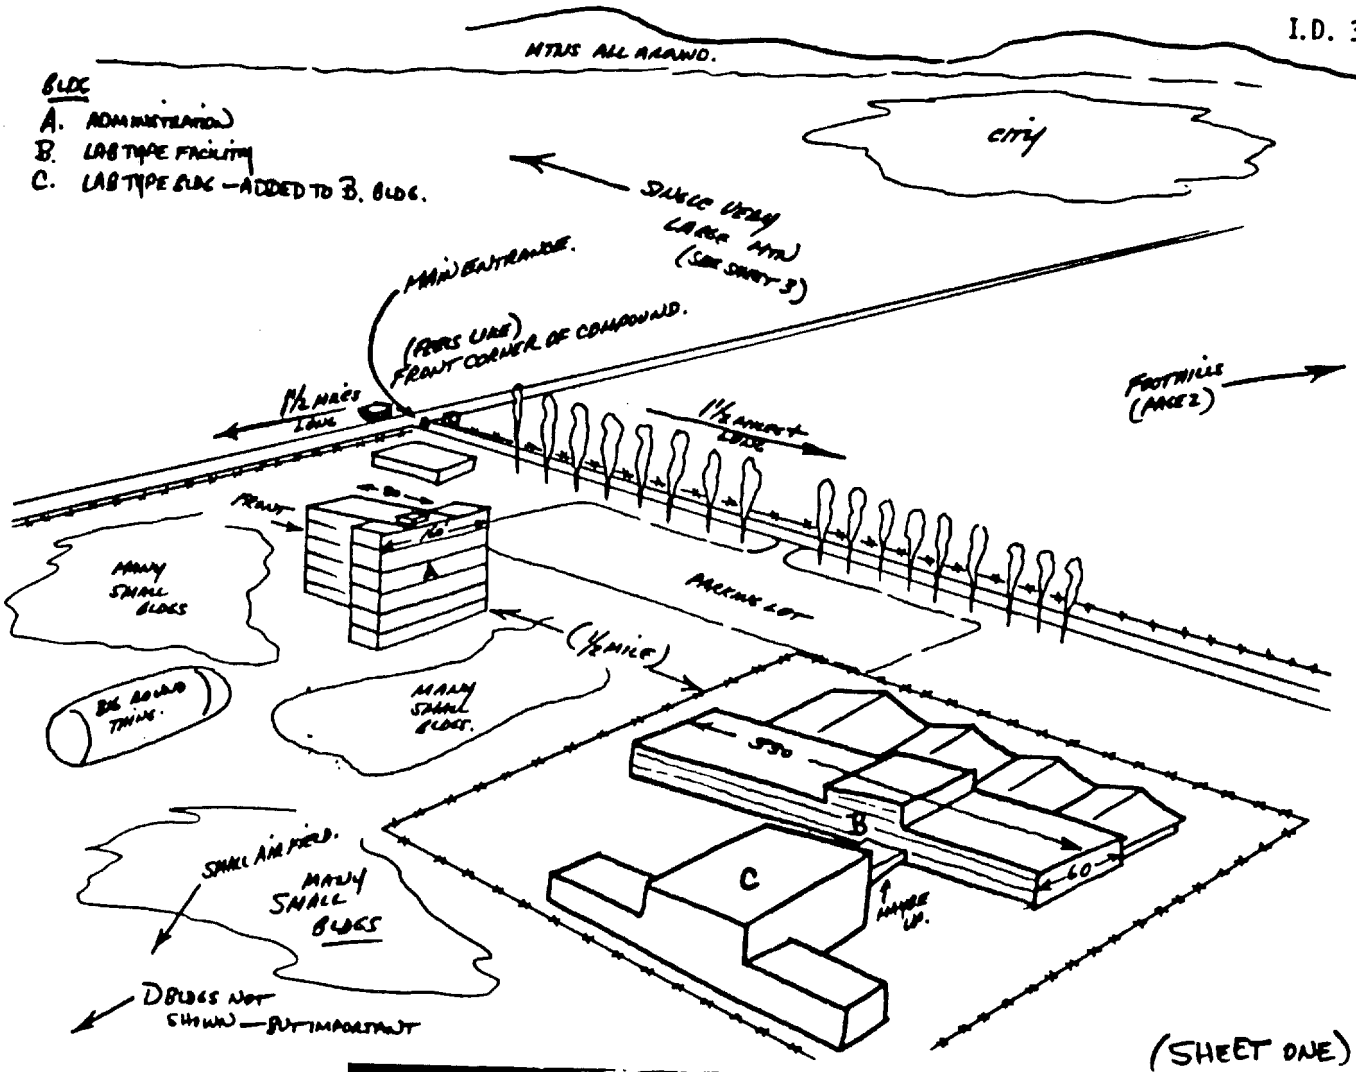 I.D. 3
MTNS ALL AROUND.
BLDG
A. ADMINISTRATION
B. LAB TYPE FACILITY
C. LAB TYPE BLDG — ADDED TO B. BLDG.
CITY
SINGLE VERY
LARGE MTN
(SEE SHEET 3)
MAIN ENTRANCE.
(FEELS LIKE)
FRONT CORNER OF COMPOUND.
FOOTHILLS
(PAGE 2)
1 1/2 MILES
LONG
1 1/2 MILES +
LONG
FRONT
80
160
A
MANY
SMALL
BLDGS
PARKING LOT
(1/2 MILE)
BIG ROUND
THING.
MANY
SMALL
BLDGS.
550
B
60
C
MAYBE
SMALL AIR FIELD.
MANY
SMALL
BLDGS
D BLDGS NOT
SHOWN — BUT IMPORTANT
(SHEET ONE)